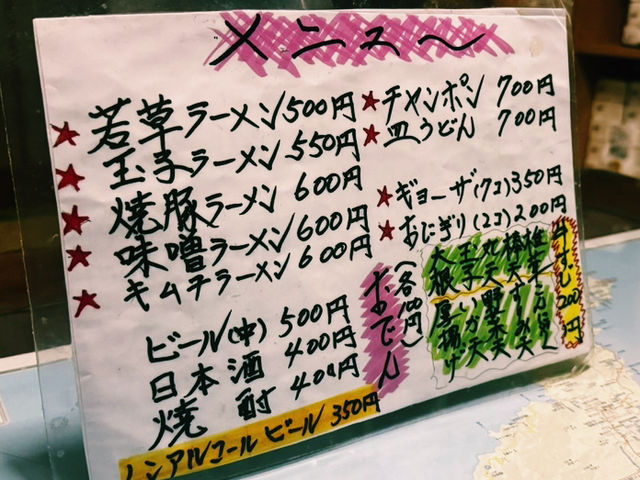 メニュー
若草ラーメン500円
玉子ラーメン 550円
焼豚ラーメン 600円
味噌ラーメン600円
キムチラーメン600円
ビール(中) 500円
日本酒 400円
焼酎 400円
ノンアルコールビール 350円
チャンポン 700円
皿うどん 700円
ギョーザ(7コ)350円
おにぎり(2コ)200円
おでん
(各100円)
牛すじ200円
棒天
丸天
玉子
大根
野菜天
いか天
厚揚げ